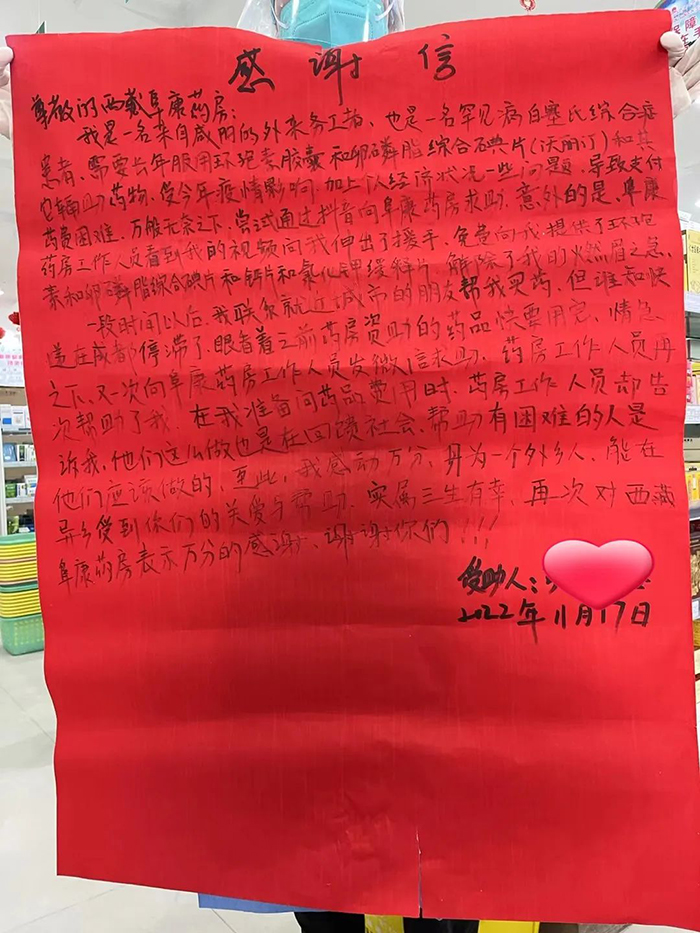 感谢信
尊敬的西藏阜康药房:
我是一名来自咸阳的外来务工者、也是一名罕见病白塞氏综合症
患者、需要长年服用环孢素胶囊和卵磷脂综合碘片(沃丽汀)和其
它辅助药物.受今年疫情影响.加上以经济状况一些问题、导致支付
药费困难.万般无奈之下.尝试通过抖音向阜康药房求助.意外的是、阜康
药房工作人员看到我的视频向我伸出了援手、免费向我提供了环孢
素和卵磷脂综合碘片和钙片和氯化钾缓释片、解除了我的火燃眉之急、
一段时间以后.我联系就近城市的朋友帮我买药.但谁知快
递在成都停滞了.眼看着之前药房资助的药品快要用完、情急
之下、又一次向阜康药房工作人员发微信求助、药房工作人员再
次帮助了我、在我准备问药品费用时.药房工作人员却告
诉我、他们这么做也是在回馈社会、帮助有困难的人是
他们应该做的、至此、我感动万分、身为一个外乡人、能在
异乡受到你们的关爱与帮助.实属三生有幸、再次对西藏
阜康药房表示万分的感谢、谢谢你们!!!
受助人:
2022年11月17日